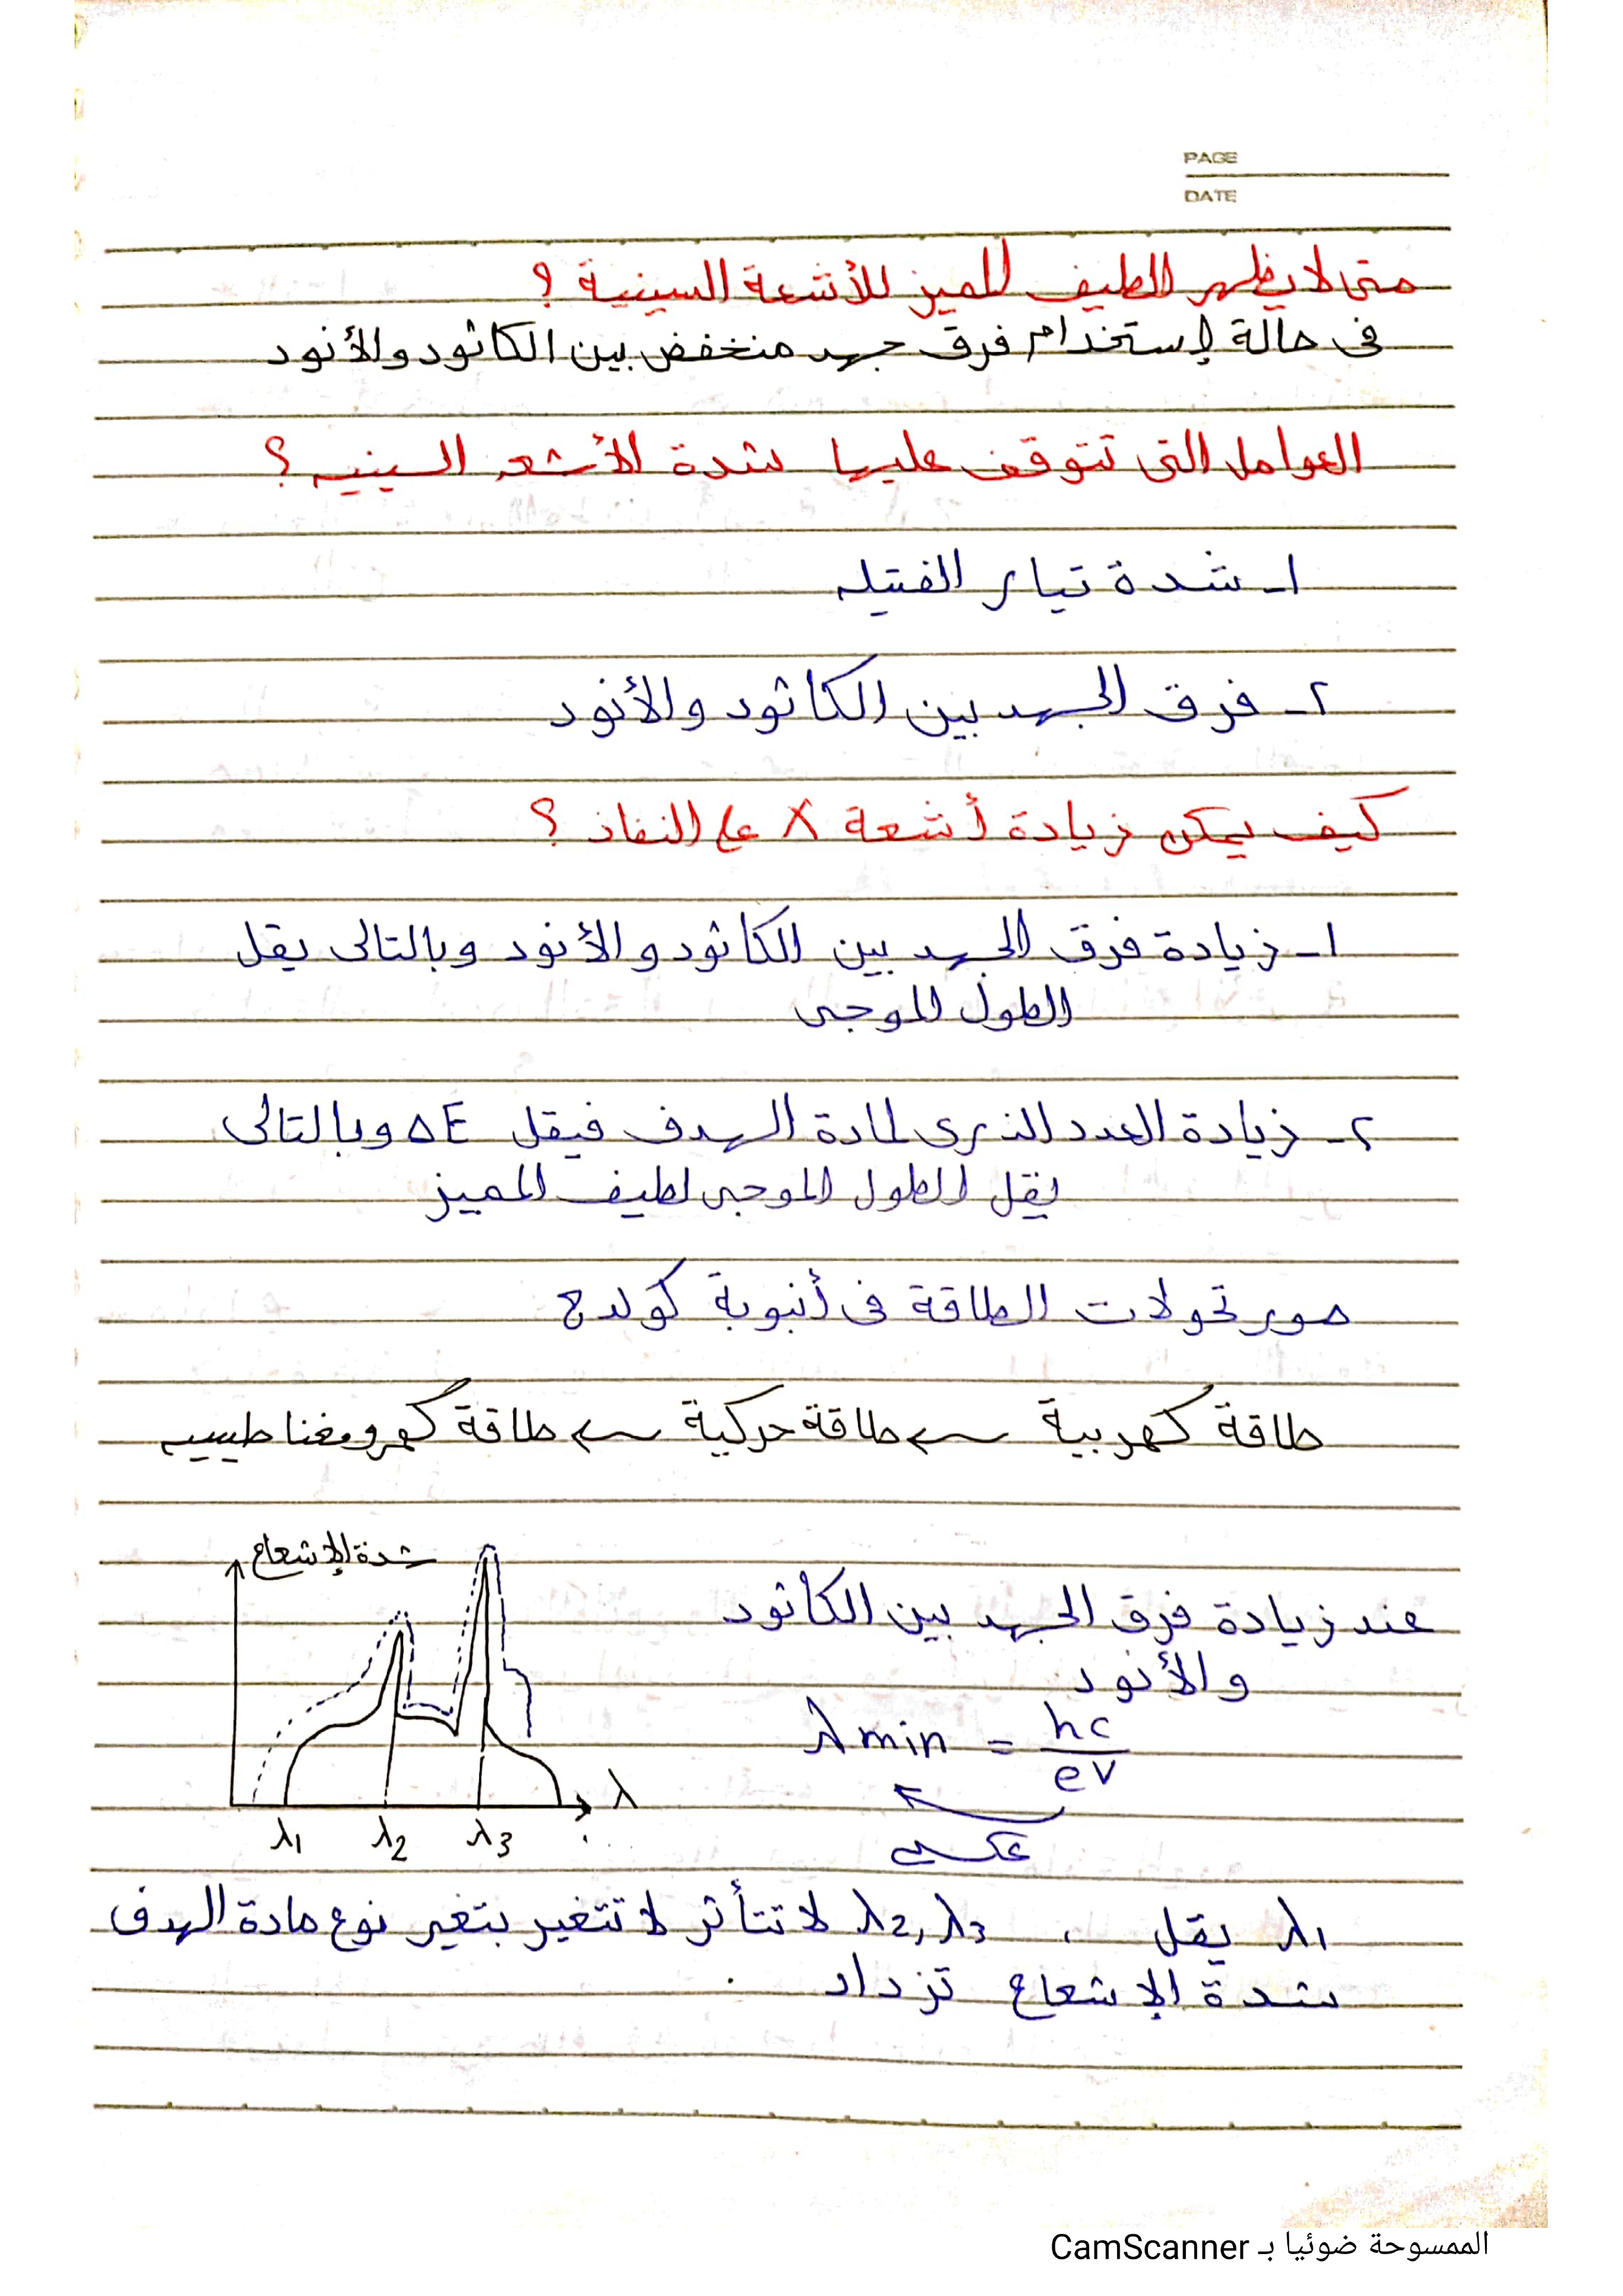 PAGE
DATE
متى لا يظهر الطيف المميز للأشعة السينية ؟
فى حالة إستخدام فرق جهد منخفض بين الكاثود والأنود
العوامل التى تتوقف عليها شدة الأشعه السينيه ؟
١- شدة تيار الفتيله
٢- فرق الجهد بين الكاثود والأنود
كيف يمكن زيادة أشعة X على النفاذ ؟
١- زيادة فرق الجهد بين الكاثود والأنود وبالتالى يقل
الطول الموجى
٢- زيادة العدد الذرى لمادة الهدف فيقل ΔE وبالتالى
يقل الطول الموجى لطيف المميز
صور تحولات الطاقة فى أنبوبة كولدج
طاقة كهربية ← طاقة حركية ← طاقة كهرومغناطيسيه
شدة الإشعاع
عند زيادة فرق الجهد بين الكاثود
والأنود
λmin = hc / eV
عكسى
λ
λ1 λ2 λ3
λ1 يقل ، λ2, λ3 لا تتأثر لا تتغير بتغير نوع مادة الهدف
شدة الإشعاع تزداد .
الممسوحة ضوئيا بـ CamScanner